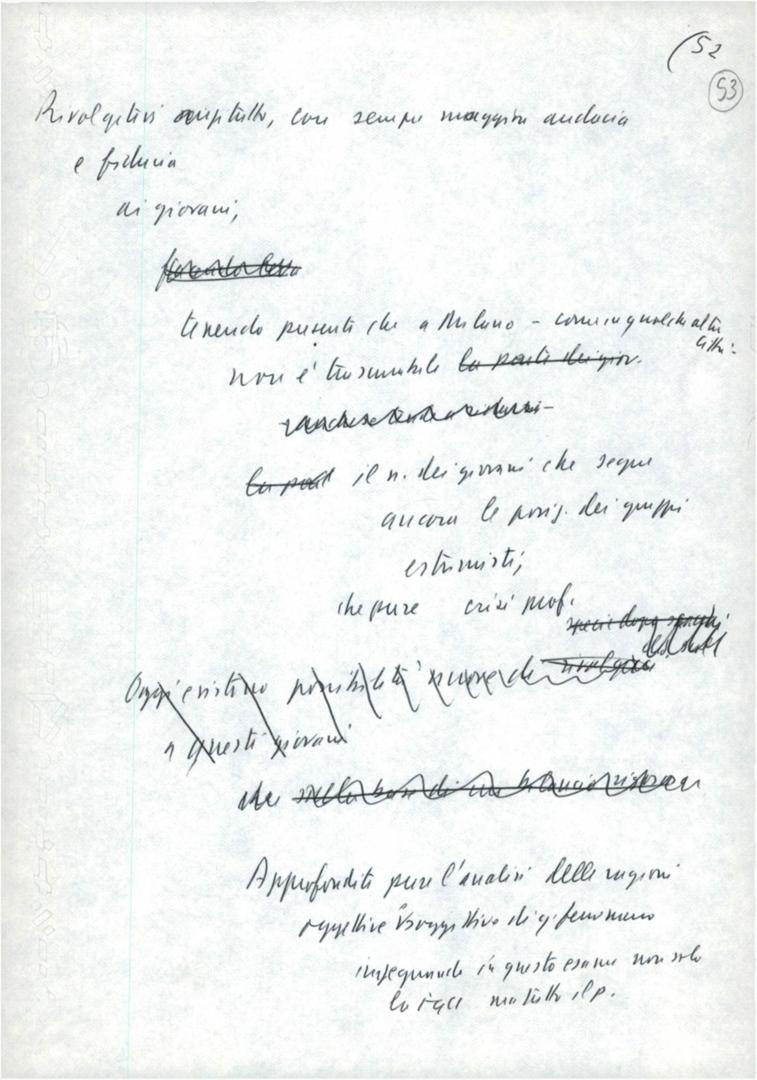 (52
53
Rivolgetevi soprattutto, con sempre maggiore audacia
e fiducia
ai giovani,
tenendo presente che a Milano - come in qualche altra
città -
non è trascurabile la parte dei giov.
la part il n. dei giovani che segue
ancora le posiz. dei gruppi
estremisti,
che pure crisi prof.
Oggi esistono possibilità nuove di rivolgersi
a questi giovani
che sulla base di un bilancio
Approfondite pure l'analisi delle ragioni
oggettive e soggettive di q. fenomeno
impegnando in questo esame non solo
la FGCI ma tutto il p.